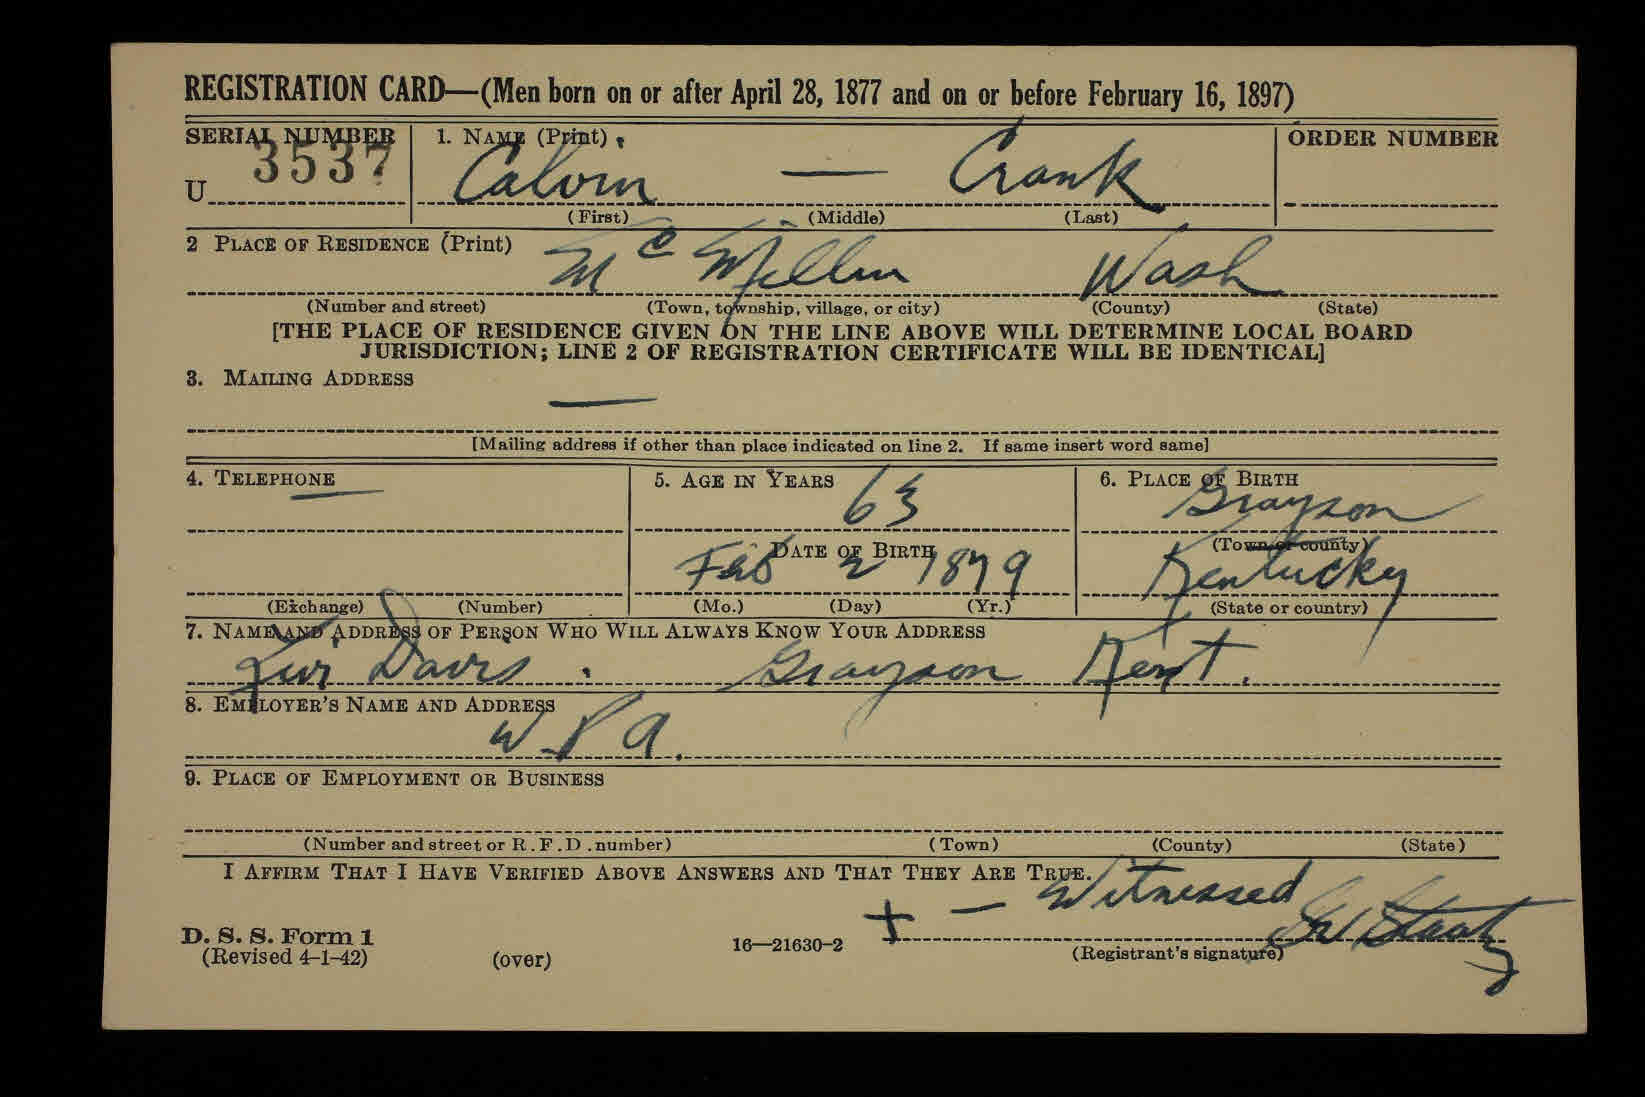 REGISTRATION CARD—(Men born on or after April 28, 1877 and on or before February 16, 1897)
SERIAL NUMBER 1. NAME (Print) ORDER NUMBER
U 3537 Calvin — Crank
(First) (Middle) (Last)
2 PLACE OF RESIDENCE (Print)
Mc Millin Wash
(Number and street) (Town, township, village, or city) (County) (State)
[THE PLACE OF RESIDENCE GIVEN ON THE LINE ABOVE WILL DETERMINE LOCAL BOARD
JURISDICTION; LINE 2 OF REGISTRATION CERTIFICATE WILL BE IDENTICAL]
3. MAILING ADDRESS
—
[Mailing address if other than place indicated on line 2. If same insert word same]
4. TELEPHONE 5. AGE IN YEARS 6. PLACE OF BIRTH
— 63 Grayson
DATE OF BIRTH (Town or county)
Feb 2 1879 Kentucky
(Exchange) (Number) (Mo.) (Day) (Yr.) (State or country)
7. NAME AND ADDRESS OF PERSON WHO WILL ALWAYS KNOW YOUR ADDRESS
Davis . Grayson Kent.
8. EMPLOYER'S NAME AND ADDRESS
W.P.A.
9. PLACE OF EMPLOYMENT OR BUSINESS
(Number and street or R.F.D. number) (Town) (County) (State)
I AFFIRM THAT I HAVE VERIFIED ABOVE ANSWERS AND THAT THEY ARE TRUE.
+ — Witnessed
D. S. S. Form 1
(Revised 4-1-42) (over) 16—21630-2 (Registrant's signature)